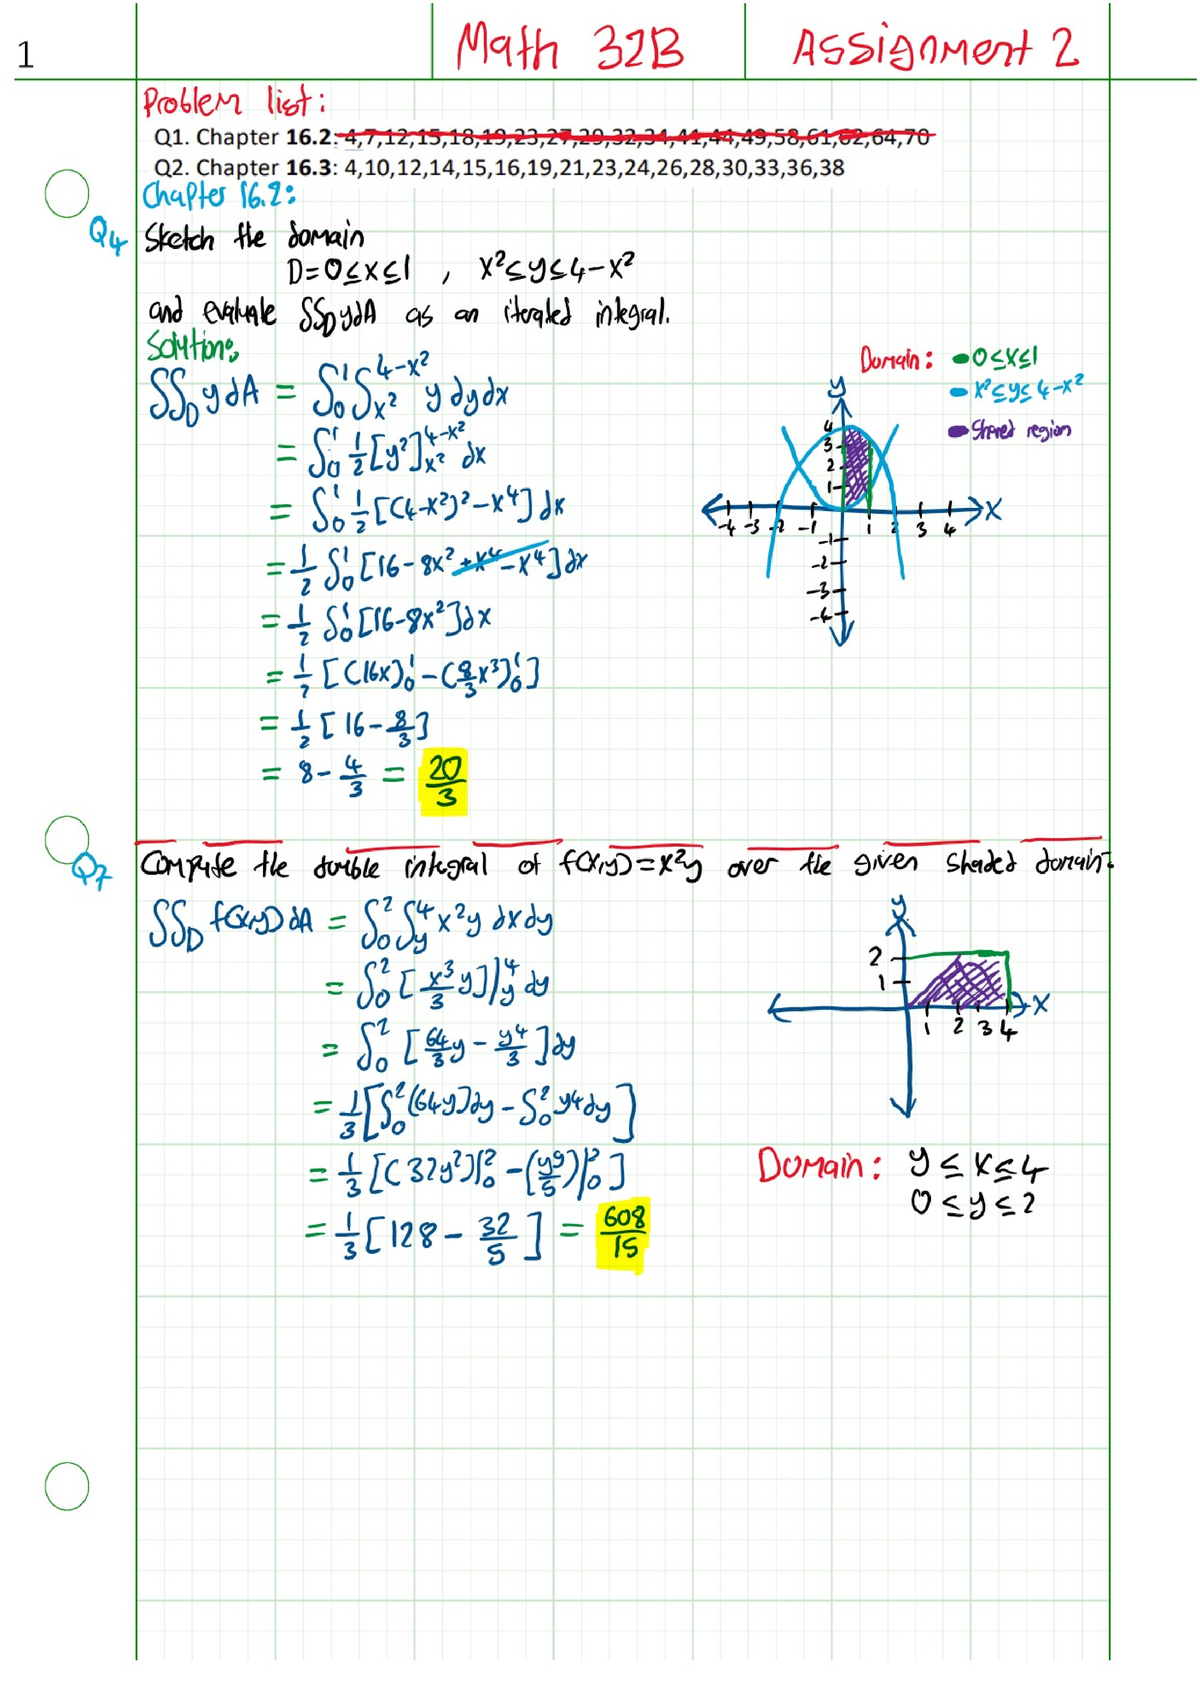 1
Math 32B
Assignment 2
Problem list:
Q1. Chapter 16.2: 4,7,12,15,18,19,23,27,29,32,34,41,44,49,58,61,62,64,70
Q2. Chapter 16.3: 4,10,12,14,15,16,19,21,23,24,26,28,30,33,36,38
Chapter 16.2:
Q4 Sketch the domain
D=0≤x≤1 , x²≤y≤4-x²
and evaluate ∫∫_D ydA as an iterated integral.
Solution:
∫∫_D ydA = ∫₀¹∫_{x²}^{4-x²} y dydx
= ∫₀¹ 1/2 [y²]_{x²}^{4-x²} dx
= ∫₀¹ 1/2 [(4-x²)²-x⁴] dx
= 1/2 ∫₀¹ [16-8x²+x⁴-x⁴] dx
= 1/2 ∫₀¹ [16-8x²] dx
= 1/2 [(16x)₀¹-(8/3 x³)₀¹]
= 1/2 [16-8/3]
= 8-4/3 = 20/3
Domain: •0≤x≤1
•x²≤y≤4-x²
•Shared region
y
4
3
2
1
-4 -3 -2 -1 1 2 3 4 x
-1
-2
-3
-4
Q7 Compute the double integral of f(x,y)=x²y over the given shaded domain.
∫∫_D f(x,y)dA = ∫₀²∫_y^4 x²y dxdy
= ∫₀² [x³/3 y]|_y^4 dy
= ∫₀² [64/3 y - y⁴/3] dy
= 1/3 [∫₀²(64y)dy - ∫₀² y⁴dy]
= 1/3 [(32y²)|₀² - (y⁵/5)|₀²]
= 1/3 [128 - 32/5] = 608/15
y
2
1
1 2 3 4 x
Domain: y≤x≤4
0≤y≤2